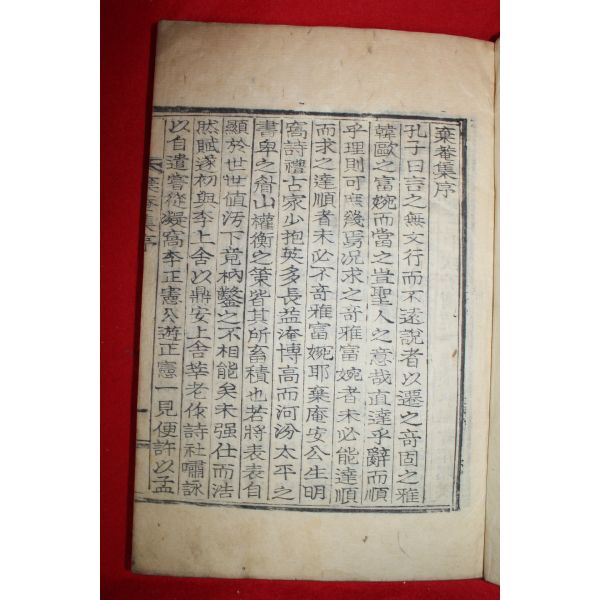 棄菴集序
孔子曰言之無文行而不遠說者以遷之奇固之雅
韓歐之富婉而當之豈聖人之意哉直達乎辭而順
乎理則可庶幾焉况求之奇雅富婉者未必能達順
而求之達順者未必不奇雅富婉耶棄庵安公生明
窩詩禮古家少抱英多長益淹博高而河汾太平之
書卑之眢山權衡之策皆其所畜積也若將表表自
顯於世世値汚下竟枘鑿之不相能矣未强仕而浩
然賦遂初與李上舍以鼎安上舍莘老作詩社嘯詠
以自遣嘗從凝窩李正憲公遊正憲一見便許以孟
棄菴集序
一